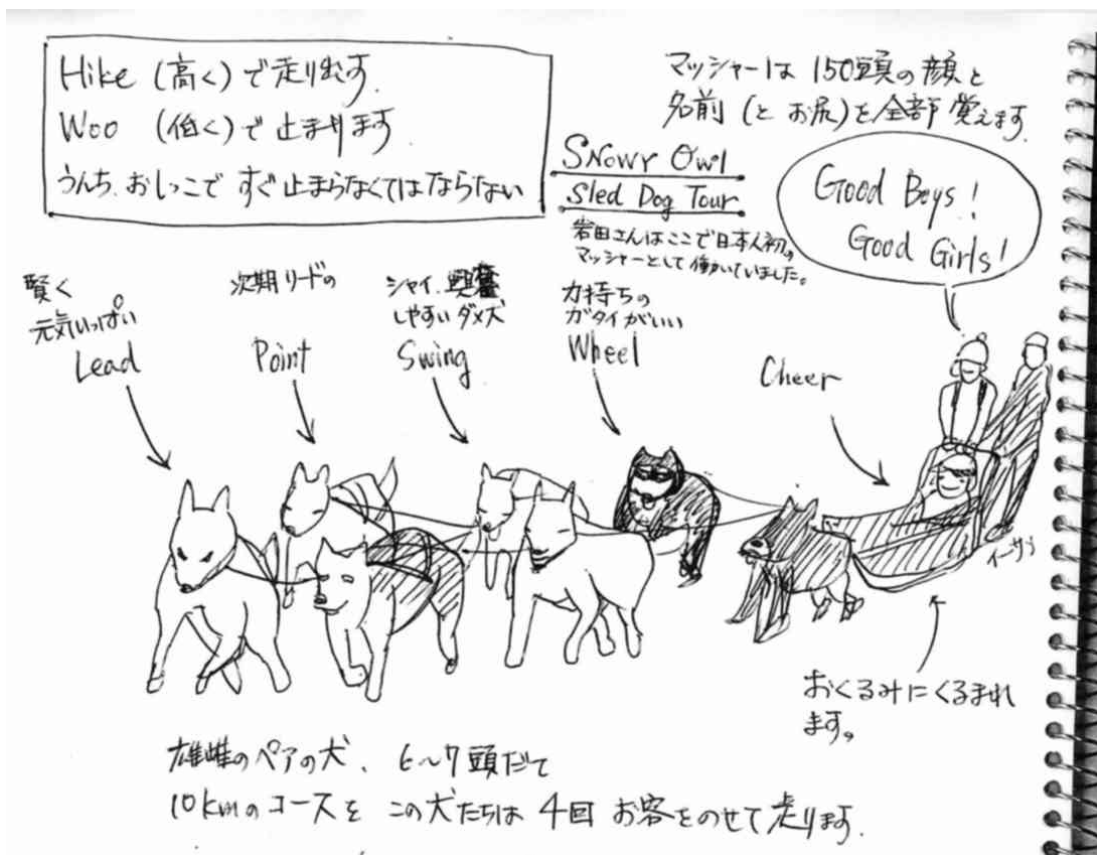 Hike (高く)で走り出す.
Woo (低く)で止まります
うんち、おしっこで すぐ止まらなくてはならない
マッシャーは 150頭の顔と
名前 (と お尻)を全部覚えます.
Snowy Owl
Sled Dog Tour
岩田さんはここで日本人初の
マッシャーとして働いていました。
Good Boys!
Good Girls!
賢く
元気いっぱい
Lead
次期リードの
Point
シャイ、興奮
しやすいダメ犬
Swing
力持ちの
ガタイがいい
Wheel
Cheer
イーサン
おくるみにくるまれ
ます。
雄雌のペアの犬、6〜7頭だて
10kmのコースを この犬たちは 4回 お客をのせて走ります.